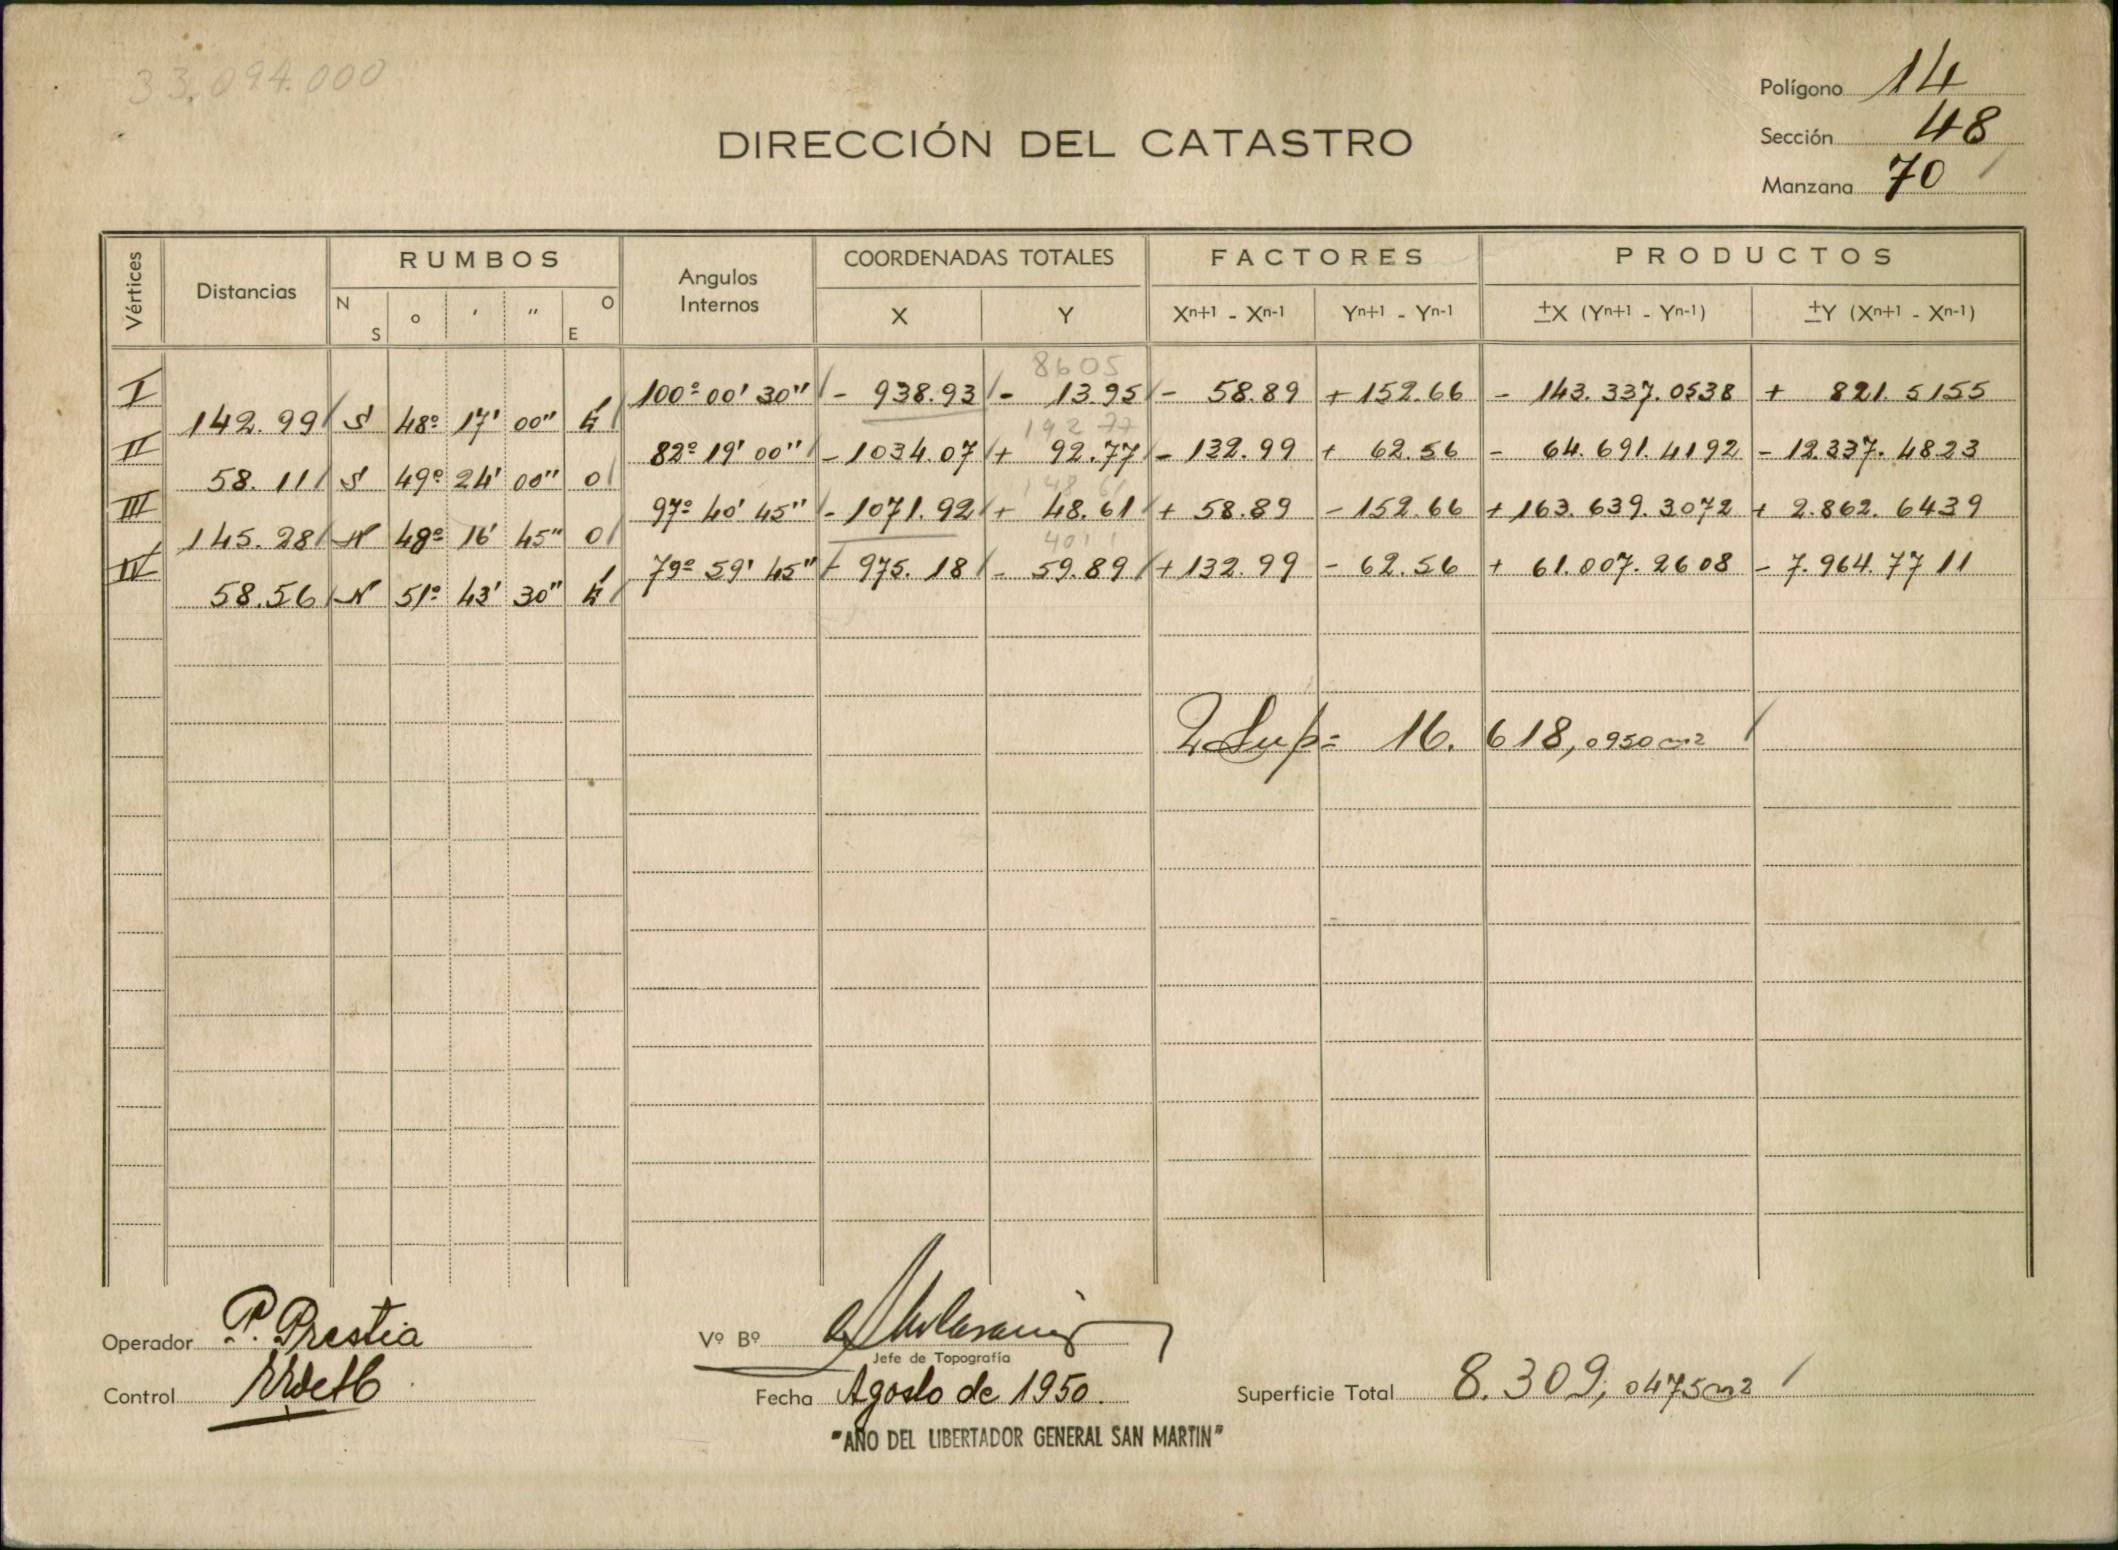 33.094.000
Polígono 14
Sección 48
Manzana 70
DIRECCIÓN DEL CATASTRO
Vértices Distancias RUMBOS Angulos Internos COORDENADAS TOTALES FACTORES PRODUCTOS
N S ° ' " O E X Y Xn+1 - Xn-1 Yn+1 - Yn-1 ±X (Yn+1 - Yn-1) ±Y (Xn+1 - Xn-1)
8605
I 100º 00' 30" - 938.93 - 13.95 - 58.89 + 152.66 - 143.337.0538 + 821.5155
142.99 S 48º 17' 00" E
192 77
II 82º 19' 00" - 1034.07 + 92.77 - 132.99 + 62.56 - 64.691.4192 - 12.337.4823
58.11 S 49º 24' 00" O
148 61
III 97º 40' 45" - 1071.92 + 48.61 + 58.89 - 152.66 + 163.639.3072 + 2.862.6439
145.28 N 48º 16' 45" O
4011
IV 79º 59' 45" - 975.18 - 59.89 + 132.99 - 62.56 + 61.007.2608 - 7.964.7711
58.56 N 51º 43' 30" E
2 Sup = 16.618,0950 m2
Operador P. Prestia
Vº Bº
Jefe de Topografía
Control
Fecha Agosto de 1950.
Superficie Total 8.309,0475 m2
"AÑO DEL LIBERTADOR GENERAL SAN MARTIN"